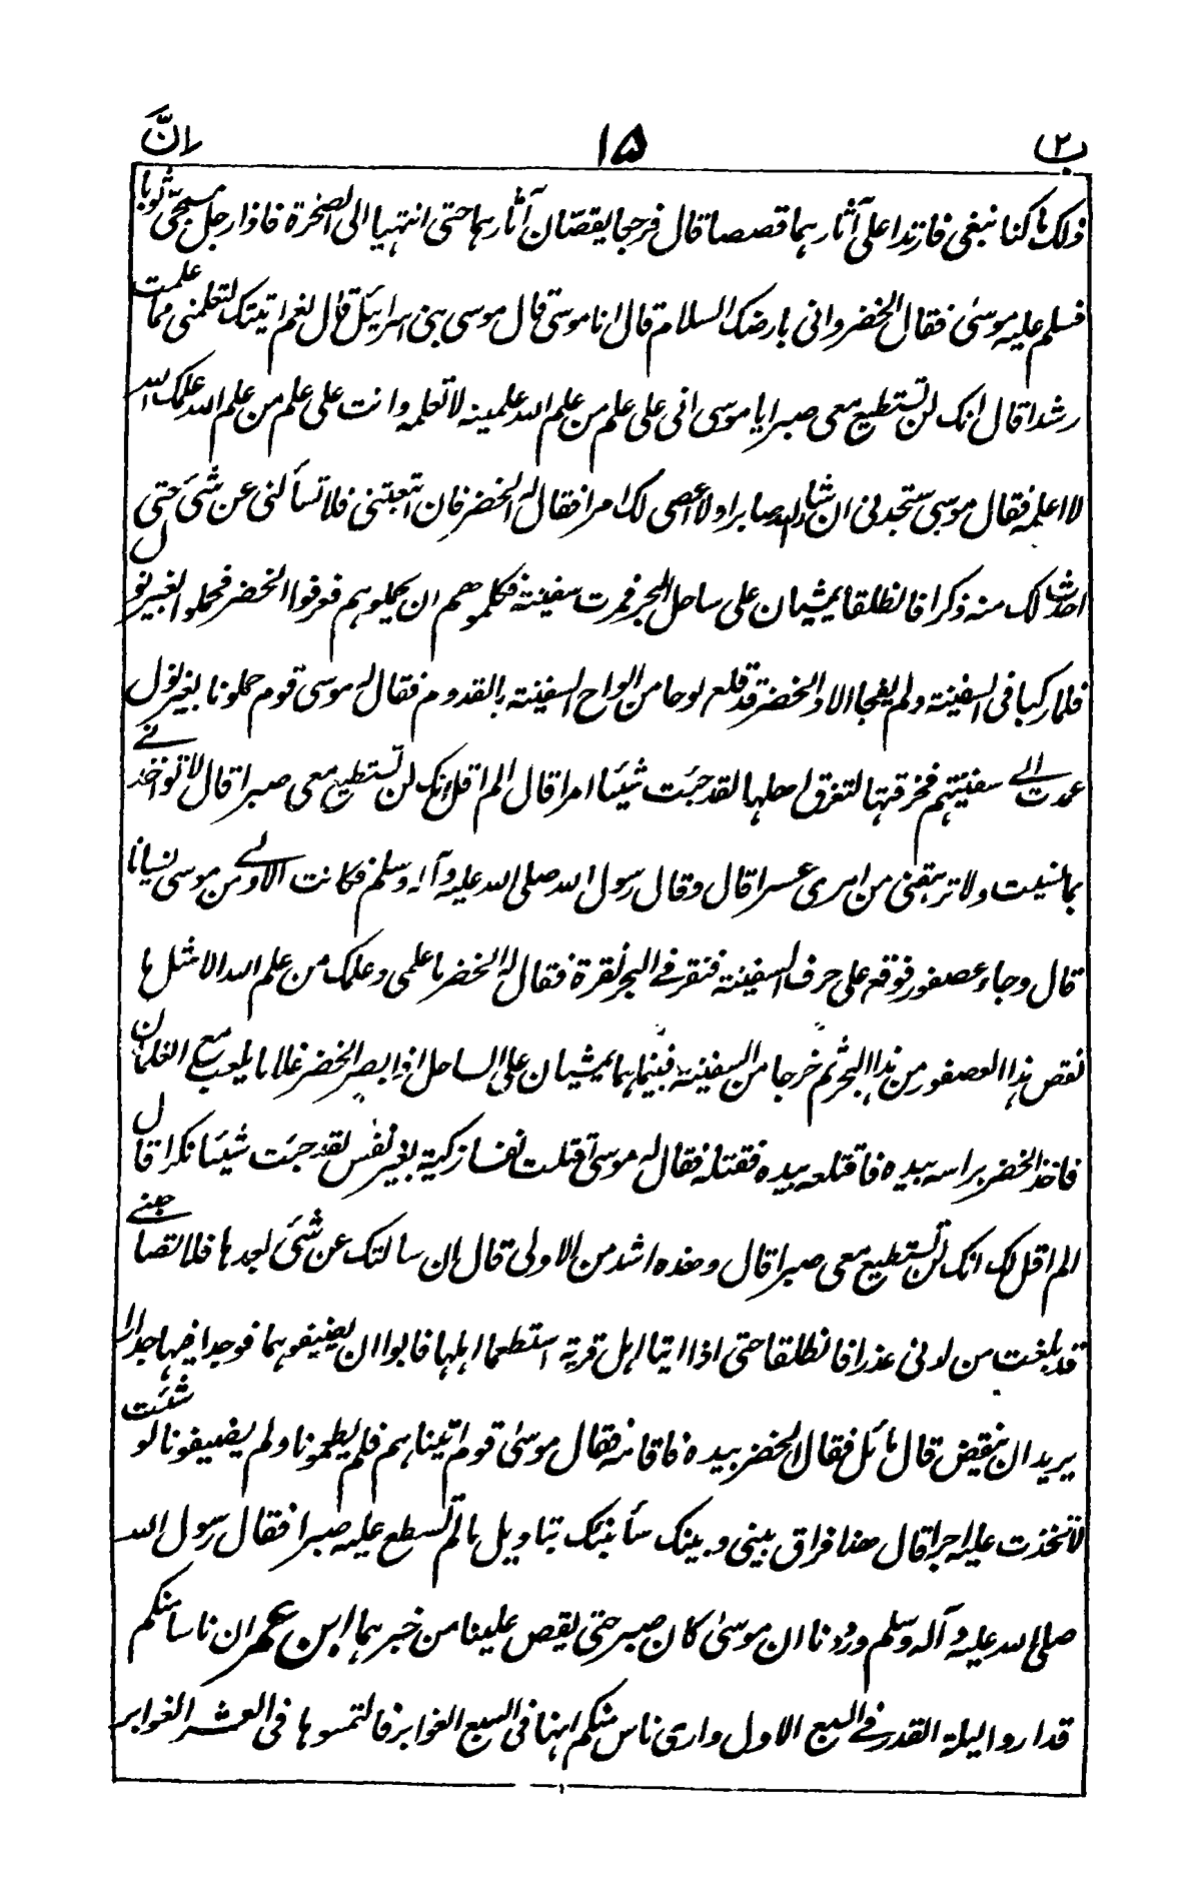 ب۲ ۱۵ انّ
ذلک ما کنا نبغی فارتدا علی آثارہما قصصا قال فرجعا یقصّان آثارہما حتی انتہیا الی الصخرة فاذا رجل مسجّی ثوبا
فسلم علیہ موسیٰ فقال الخضر وانی بارضک السلام قال انا موسیٰ قال موسی بنی اسرائیل قال نعم اتیتک لتعلمنی مما علمت
رشدا قال انک لن تستطیع معی صبرا یا موسی انی علی علم من علم اللہ علمنیہ لا تعلمہ وانت علی علم من علم اللہ علمک اللہ
لا اعلمہ فقال موسی ستجدنی ان شاء اللہ صابرا ولا اعصی لک امرا فقال لہ الخضر فان اتبعتنی فلا تسألنی عن شیٔ حتی
احدث لک منہ ذکرا فانطلقا یمشیان علی ساحل البحر فمرت سفینۃ فکلموھم ان یحملوہم فعرفوا الخضر فحملوا بغیر نول
فلما رکبا فی السفینۃ ولم یفجأ الا والخضر قد قلع لوحا من الواح السفینۃ بالقدوم فقال لہ موسی قوم حملونا بغیر نول
عمدت الے سفینتہم فخرقتہا لتغرق اھلہا لقد جئت شیئا امرا قال الم اقل انک لن تستطیع معی صبرا قال لا تؤاخذنے
بما نسیت ولا ترہقنی من امری عسرا قال وقال رسول اللہ صلی اللہ علیہ وآلہ وسلم فکانت الاولے من موسی نسیانا
قال وجاء عصفور فوقع علی حرف السفینۃ فنقر فے البحر نقرة فقال لہ الخضر ما علمی وعلمک من علم اللہ الا مثل ما
نقص ہذا العصفور من ہذا البحر ثم خرجا من السفینۃ فبینما ہما یمشیان علی الساحل اذ ابصر الخضر غلاما یلعب مع الغلمان
فاخذ الخضر براسہ بیدہ فاقتلعہ بیدہ فقتلہ فقال لہ موسیٰ اقتلت نفسا زکیۃ بغیر نفس لقد جئت شیئا نکرا قال
الم اقل لک انک لن تستطیع معی صبرا قال وھذہ اشد من الاولی قال ان سالتک عن شیٔ بعدہا فلا تصاحبنے
قد بلغت من لدنی عذرا فانطلقا حتی اذا اتیا اہل قریۃ استطعما اہلہا فابوا ان یضیفوہما فوجدا فیہا جدارا
یرید ان ینقض قال مائل فقال الخضر بیدہ فاقامہ فقال موسیٰ قوم اتیناہم فلم یطعمونا ولم یضیفونا لو شئت
لاتخذت علیہ اجرا قال ھذا فراق بینی وبینک سأنبئک بتاویل ما لم تسطع علیہ صبرا فقال رسول اللہ
صلی اللہ علیہ وآلہ وسلم وددنا ان موسیٰ کان صبر حتی یقص علینا من خبرہما ابن عمر ان ناسا منکم
قد اروا لیلۃ القدر فے السبع الاول واری ناس منکم انہا فی السبع الغوابر فالتمسوہا فی العشر الغوابر